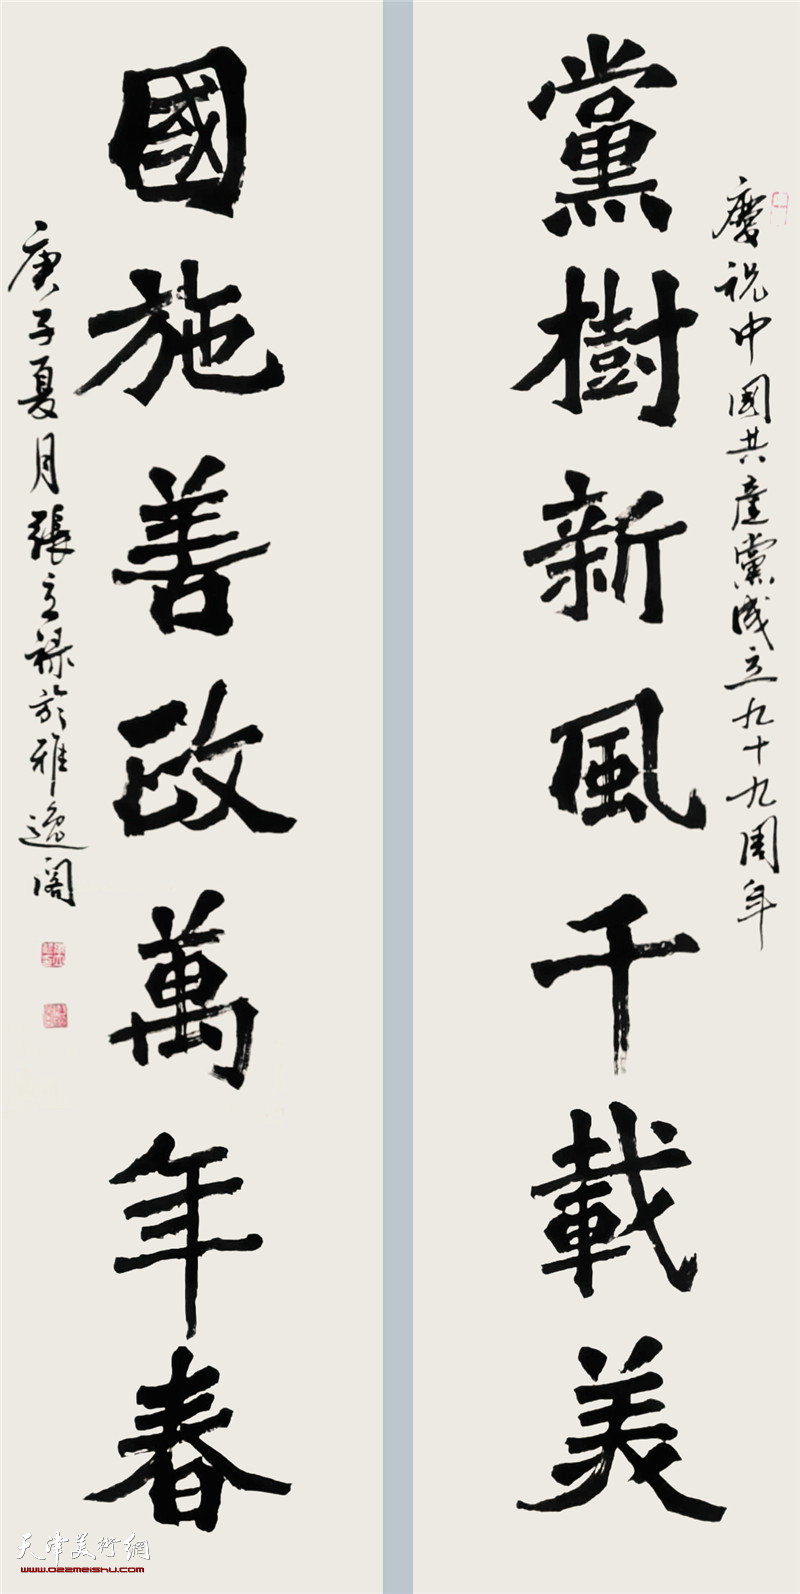 慶祝中國共產黨成立九十九周年
黨樹新風千載美
國施善政萬年春
庚子夏月張立祿於雅逸閣
天津美術網
www.022meishu.com